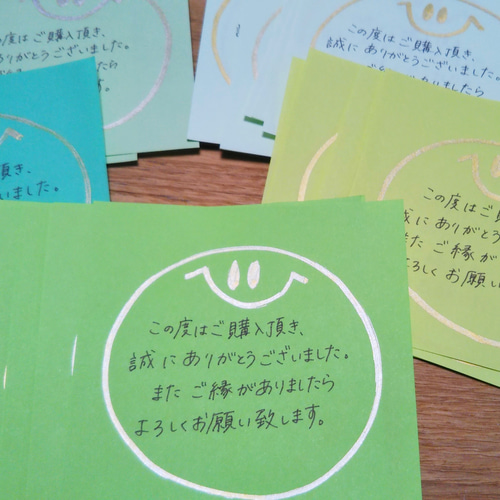 この度はご購入頂き、
りがとうございました。
この度はご購入頂き、
誠にありがとうございました。
頂き、
いました。
この度はご購
誠にありがとう
またご縁が
よろしくお願い
この度はご購入頂き、
誠にありがとうございました。
またご縁がありましたら
よろしくお願い致します。